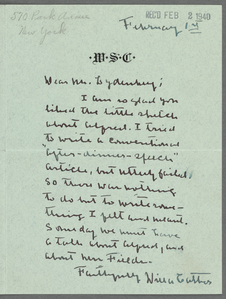 570 Park Avenue
New York
REC'D FEB 2 1940
February 1st
W·S·C·
Dear Mr. Lydenberg;
I am so glad you
liked this little sketch
about Alfred. I tried
to write a conventional
"after-dinner-speech"
article, but utterly failed,
So there was nothing
to do but to write some-
thing I felt and meant.
Someday we must have
a talk about Alfred, and
about Mrs Fields.
Faithfully Willa Cather